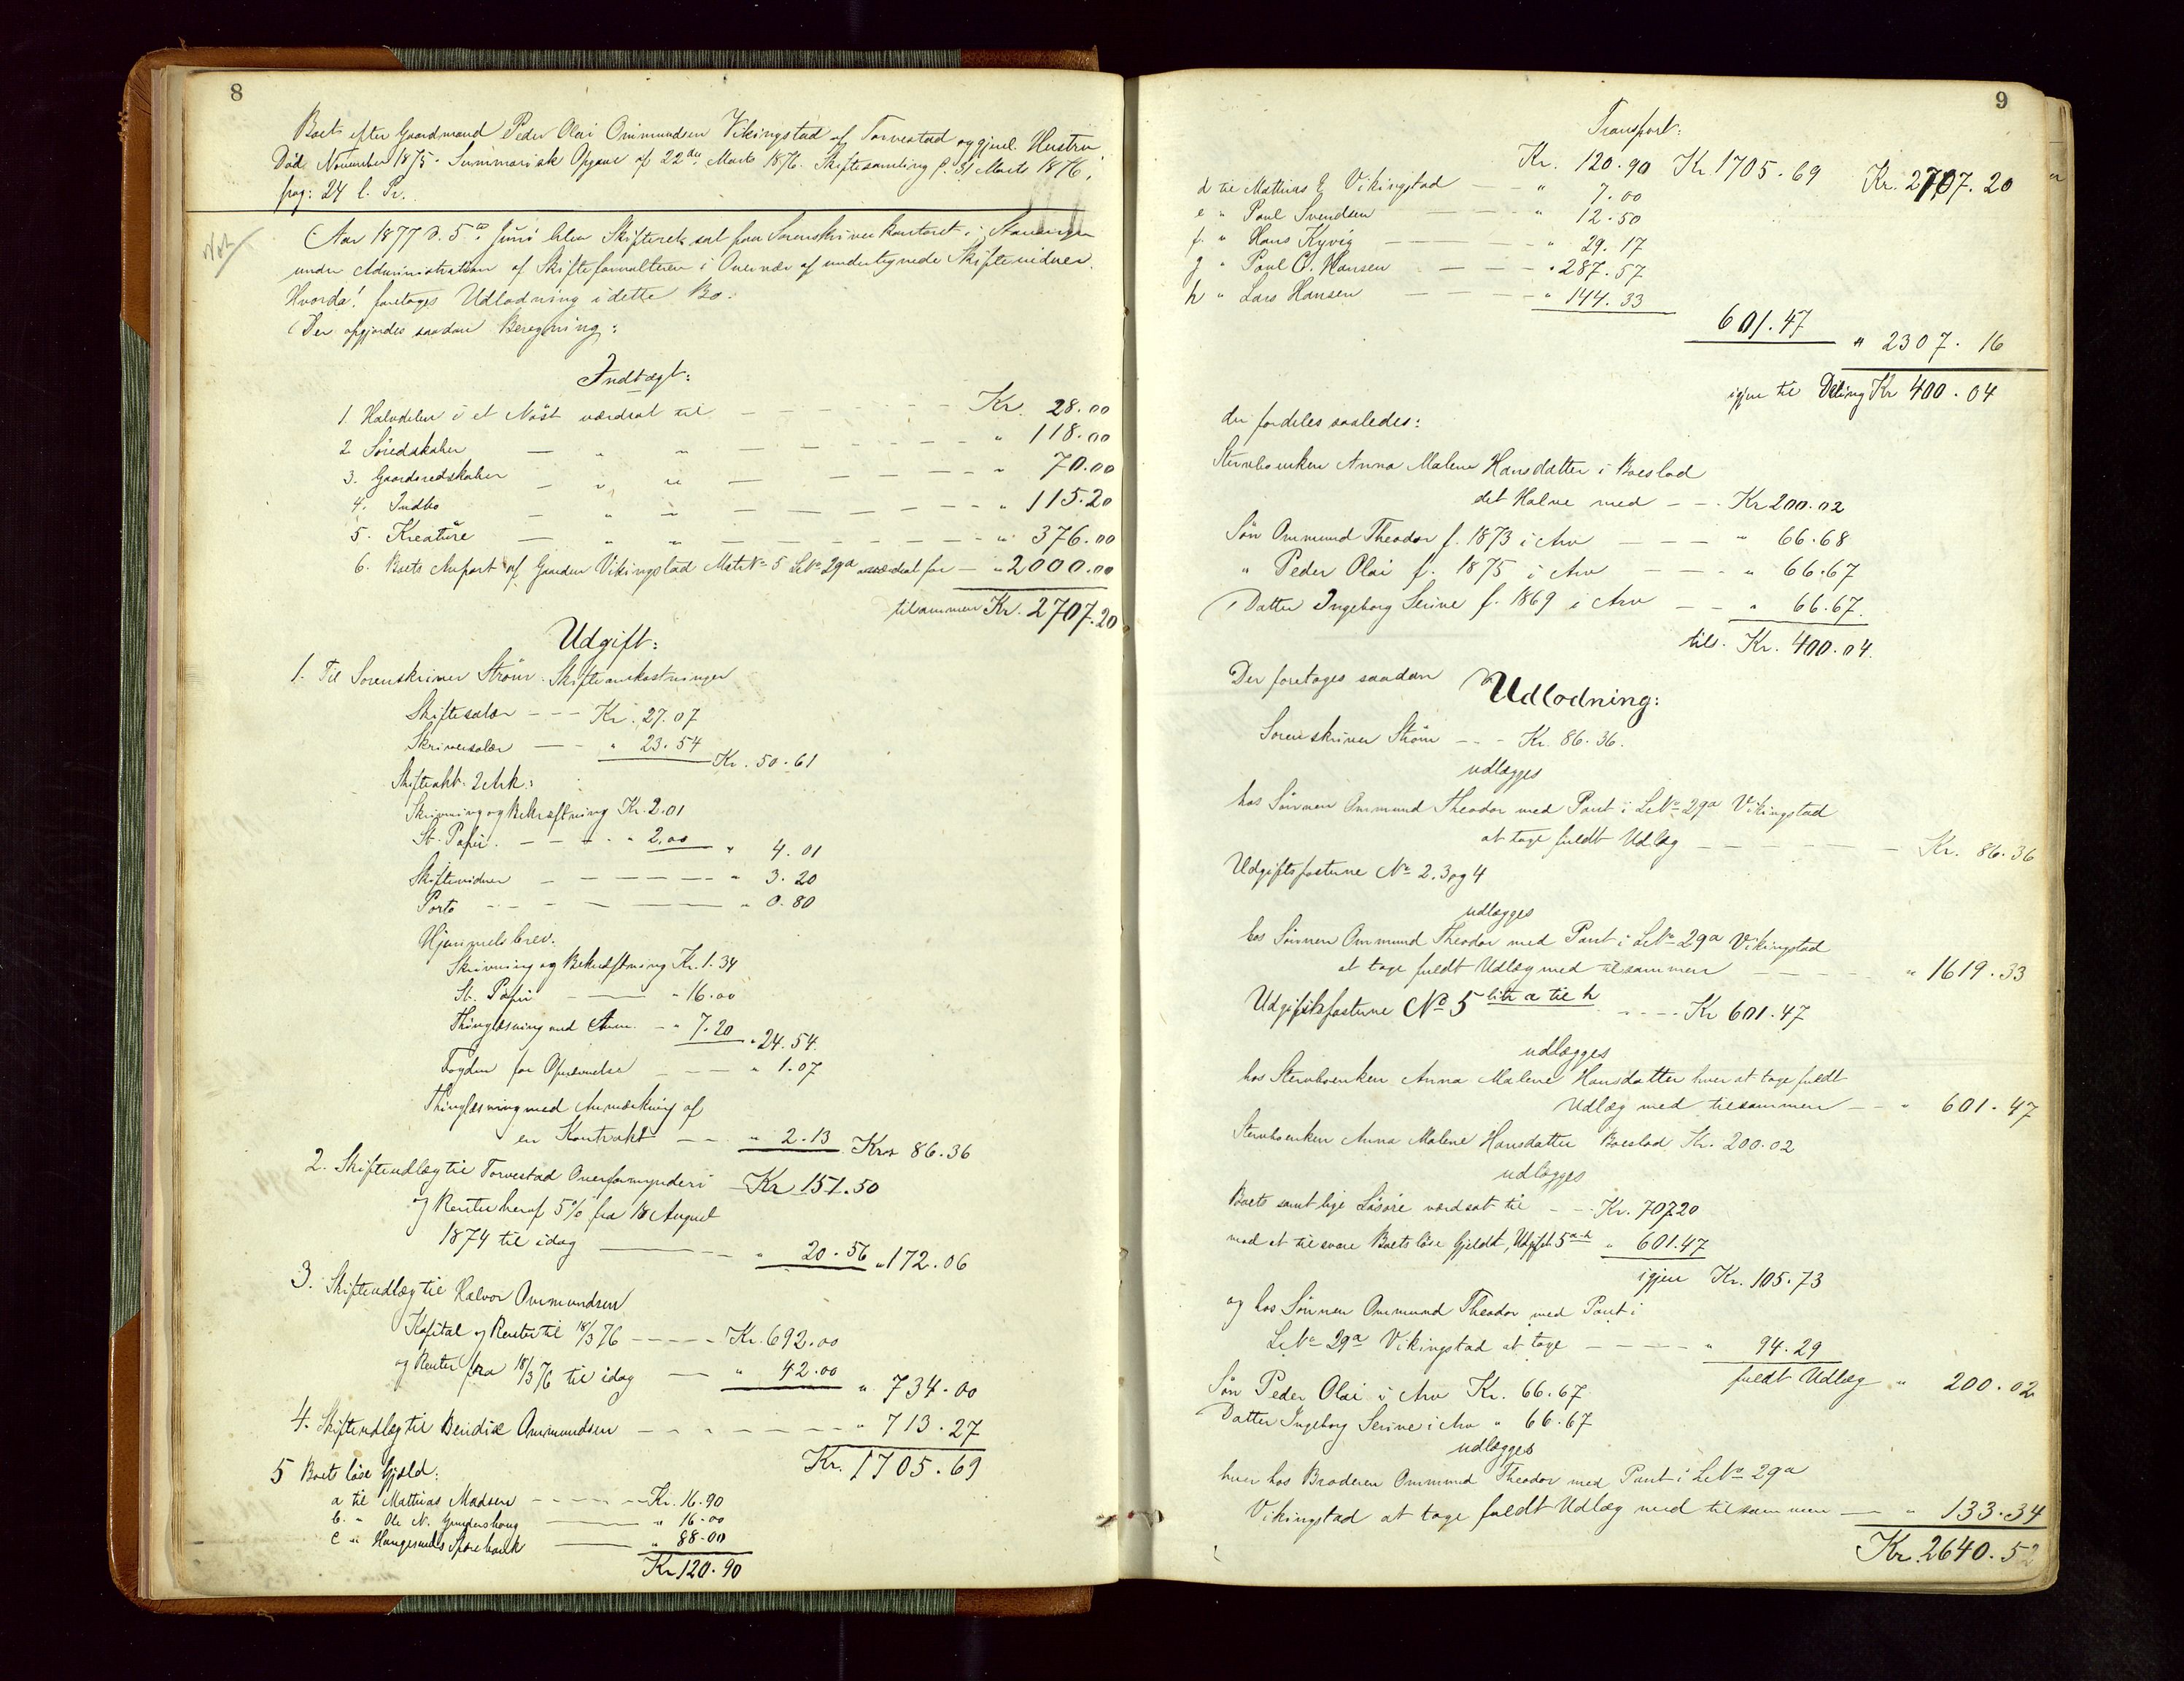 8
Boet efter Gaardmand Peder Olai Ommundsen Vikingstad af Torvestad og gjenl. Hustru
Död November 1875. Summarisk Opgave af 22de Marts 1876. Skiftesamling f. 31 Marts 1876,
pag: 24 l. Pr.
Not
Aar 1877 d. 5te Juni blev Skifteret sat paa Sorenskriverkontoret i Stavanger
under Administration af Skifteforvalteren i Overvær af undertegnede Skiftevidner.
Hvorda! foretoges Udlodning i dette Bo.
Der opgjordes saadan Beregning:
Indtægt:
1. Halvdelen i et Nöst værdsat til — — — Kr. 28.00
2. Söredskaber — " " — — — " 118.00
3. Gaardsredskaber — " " — — — " 70.00
4. Indbo — " " — — — " 115.20
5. Kreature — " " — — — " 376.00
6. Boets Anpart af Gaarden Vikingstad Mats No 5 LNo 29a værdsat for — " 2000.00
tilsammen Kr. 2707.20
Udgift:
1. Til Sorenskriver Ström Skifteomkostninger
Skiftesalær - - - Kr. 27.07
Skriversalær — - " 23.54
Kr. 50.61
Skifteakt. 2 Ark:
Skrivning og Bekræftning Kr. 2.01
St. Papir. — — - " 2.00 " 4.01
Skiftevidner — — — — " 3.20
Porto - - — — — " 0.80
Hjemmelsbrev.
Skrivning og Bekræftning Kr. 1.34
St. Papir — — " 16.00
Thinglæsning med Anm. - " 7.20 " 24.54
Fogden for Opnævnelse — — — " 1.07
Thinglæsning med Anmærkning af
en Kontrakt — - " 2.13 Kror 86.36
2. Skifteudlæg til Torvestad Overformynderi — Kr 151.50
og Renter heraf 5% fra 18 August
1874 til idag — — — " 20.56 " 172.06
3. Skifteudlæg til Halvor Ommundsen
Kapital og Renter til 18/3 76 - - - - Kr. 692.00
og Renter fra 18/3 76 til idag — " 42.00 " 734.00
4. Skifteudlæg til Bendix Ommundsen - - - - - " 713.27
Kr. 1705.69
5 Boets löse Gjæld:
a til Mathias Madsen - - - - Kr. 16.90
b. " Ole N. — " 16.00
c " Haugesunds Sparebank — " 88.00
Kr 120.90
9
Transport:
Kr. 120.90 Kr. 1705.69 Kr. 2707.20
d til Mathias E Vikingstad — — " 7.00
e " Poul Svendsen — — — " 12.50
f. " Hans Kyvig — — — — " 29.17
g " Poul O. Hansen — — — " 287.57
h " Lars Hansen — — — — " 144.33
601.47
" 2307.16
igjen til Deling Kr 400.04
der fordeles saaledes:
Stervboenken Anna Malene Hansdatter i Boeslod
det Halve med - - - Kr 200.02
Sön Ommund Theodor f. 1873 i Arv — — — " 66.68
" Peder Olai f. 1875 i Arv — — — " 66.67
Datter Ingeborg Serine f. 1869 i Arv — - " 66.67.
tils. Kr. 400.04.
Der foretoges saadan Udlodning:
Sorenskriver Ström - - - Kr. 86.36.
udlægges
hos Sönnen Ommund Theodor med Pant i LNo 29a Vikingstad
at tage fuldt Udlæg — — — — — Kr. 86.36
Udgiftsposterne No 2. 3 og 4
udlægges
hos Sönnen Ommund Theodor med Pant i LNo 29a Vikingstad
at tage fuldt Udlæg med tilsammen — — — " 1619.33
Udgiftsposterne No 5 litr a til h - - - - Kr 601.47
udlægges
hos Stervboenken Anna Malene Hansdatter hver at tage fuldt
Udlæg med tilsammen — - " 601.47
Stervboenken Anna Malene Hansdatter Boeslod Kr. 200.02
udlægges
Boets samtlige Lösöre værdsat til - - - Kr. 707.20
mod at tilsvare Boets löse Gjeld, Udgift 5 a-h " 601.47
igjen Kr. 105.73
og hos Sönnen Ommund Theodor med Pant i
LNo 29a Vikingstad at tage - - - - - " 94.29
fuldt Udlæg " 200.02
Sön Peder Olai i Arv Kr. 66.67
Datter Ingeborg Serine i Arv " 66.67
udlægges
hver hos Broderen Ommund Theodor med Pant i LNo 29a
Vikingstad at tage fuldt Udlæg med tilsammen — " 133.34
Kr. 2640.52